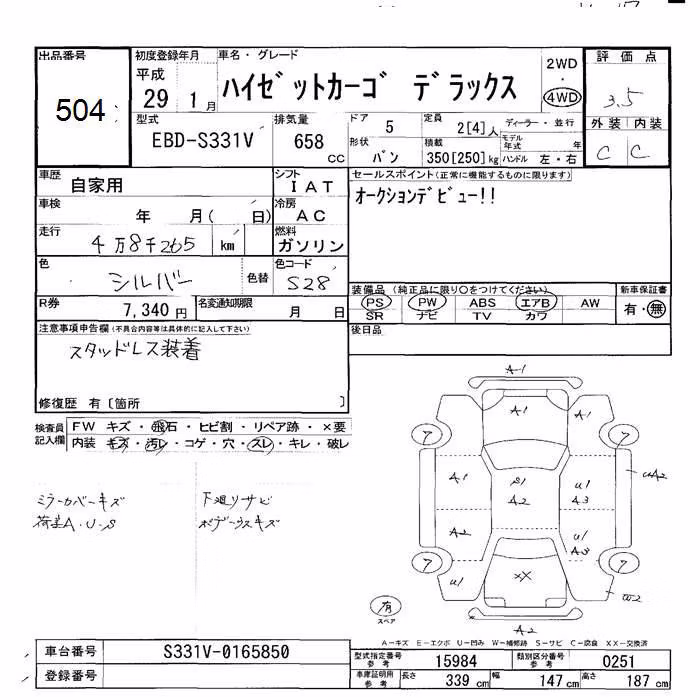 出品番号
504
初度登録年月
平成
29 1月
車名・グレード
ハイゼットカーゴ デラックス
2WD
・
4WD
評価点
3.5
外装 内装
C C
型式
EBD-S331V
排気量
658
CC
ドア
5
定員
2[4]人
ディーラー・並行
モデル年式 年
形状
バン
積載
350[250]kg
ハンドル 左・右
車歴
自家用
シフト
IAT
セールスポイント(正常に機能するものに限ります)
オークションデビュー!!
車検
年 月( 日)
冷房
AC
走行
4万8千265 km
燃料
ガソリン
色
シルバー
色替
色コード
S28
装備品(純正品に限り○をつけてください)
PS PW ABS エアB AW
SR ナビ TV カワ
新車保証書
有・無
R券
7,340円
名変通知期限
月 日
後日品
注意事項申告欄(不具合内容等は具体的に記入して下さい)
スタッドレス装着
修復歴 有〔箇所 〕
検査員記入欄
FW キズ・飛石・ヒビ割・リペア跡・×要
内装 キズ・汚レ・コゲ・穴・スレ・キレ・破レ
ミラーカバーキズ
下廻りサビ
ボデーウスキズ
A-1
A1
A1
ア
ア
A1
S1
A2
U1
A3
UA2
A2
U1
A3
ア
ア
U1
XX
W2
A2
有
スペア
A-キズ E-エクボ U-凹み W-補修跡 S-サビ C-腐食 XX-交換済
車台番号
S331V-0165850
登録番号
型式指定番号
参考
15984
類別区分番号
参考
0251
車庫証明用
参考
長さ 339cm
幅 147cm
高さ 187cm